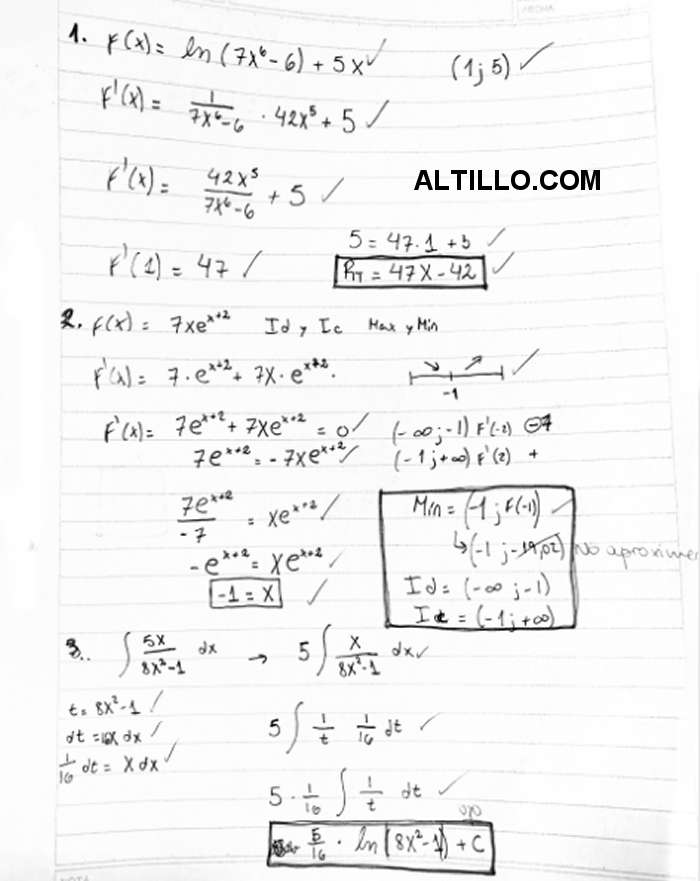 1. F(x) = ln (7x⁶ - 6) + 5x ✓ (1; 5) ✓
F'(x) = 1/(7x⁶ - 6) · 42x⁵ + 5 ✓
F'(x) = 42x⁵/(7x⁶ - 6) + 5 ✓
ALTILLO.COM
5 = 47·1 + b ✓
F'(1) = 47 ✓
RT = 47x - 42 ✓
2. F(x) = 7xe^(x+2) Id y Ic Max y Min
F'(x) = 7·e^(x+2) + 7x·e^(x+2).
-1 ✓
F'(x) = 7e^(x+2) + 7xe^(x+2) = 0 ✓ (-∞; -1) F'(-2) ⊖7
7e^(x+2) = -7xe^(x+2) ✓ (-1; +∞) F'(2) +
7e^(x+2)/-7 = xe^(x+2) ✓
-e^(x+2) = xe^(x+2) ✓
-1 = x ✓
Min = (-1; F(-1)) ✓
↳ (-1; -19,02) No aproximen
Id = (-∞; -1)
Ic = (-1; +∞)
3. ∫ 5x/(8x²-1) dx → 5 ∫ x/(8x²-1) dx ✓
t = 8x² - 1 ✓
dt = 16x dx ✓
1/16 dt = x dx ✓
5 ∫ 1/t 1/16 dt ✓
5 · 1/16 ∫ 1/t dt ✓
5/16 · ln |8x²-1| + C